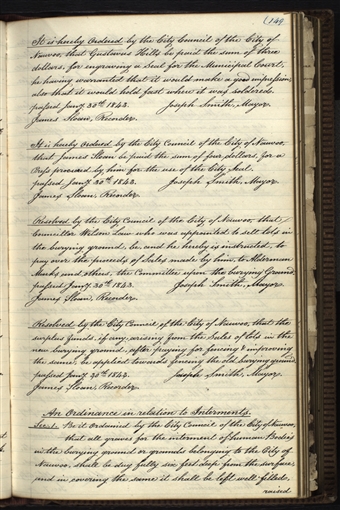 149
It is hereby Ordered by the City Council of the City of
Nauvoo, that Gustavus Hills be paid the sum of three
dollars, for engraving a Seal for the Municipal Court,
he having warranted that it would make a good impression,
also that it would hold fast where it was soldered.
passed Jany. 30th 1843. Joseph Smith, Mayor.
James Sloan, Recorder.
It is hereby Ordered by the City Council of the City of Nauvoo,
that James Sloan be paid the sum of four dollars, for a
Press procured by him for the use of the City Seal.
passed Jany. 30th 1843. Joseph Smith, Mayor.
James Sloan, Recorder.
Resolved by the City Council of the City of Nauvoo, that
Councillor Wilson Law who was appointed to sell lots in
the burying ground, be, and he hereby is instructed, to
pay over the proceeds of Sales made by him, to Alderman
Marks and others, the Committee upon the burying Ground.
passed Jany. 30th 1843. Joseph Smith, Mayor.
James Sloan, Recorder.
Resolved by the City Council of the City of Nauvoo, that the
surplus funds, if any, arising from the Sales of lots in the
new burying ground, after paying for fencing & improving
the same, be applied towards fencing the old burying ground.
passed Jany. 30th 1843. Joseph Smith, Mayor.
James Sloan, Recorder.
An Ordinance in relation to Interments.
Sec. 1. Be it Ordained by the City Council of the City of Nauvoo,
that all graves for the interment of human Bodies
in the burying ground or grounds belonging to the City of
Nauvoo, shall be dug fully six feet deep from the surface,
and in covering the same it shall be left well filled,
raised